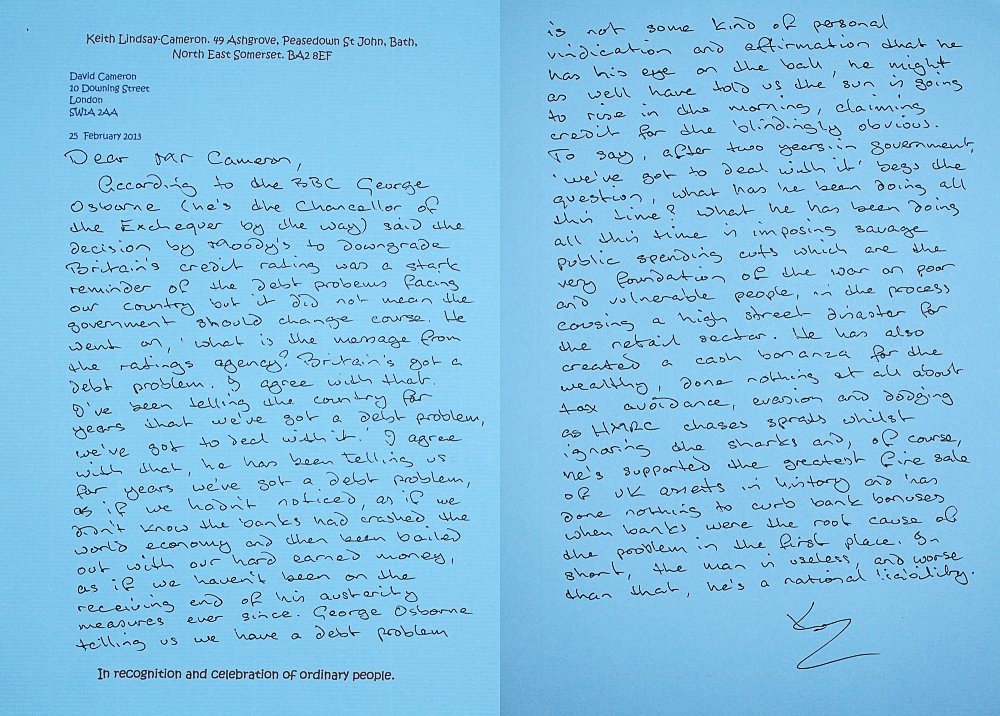 Keith Lindsay-Cameron. 49 Ashgrove, Peasedown St John, Bath,
North East Somerset. BA2 8EF
David Cameron
10 Downing Street
London
SW1A 2AA
25 February 2013
Dear Mr Cameron,
According to the BBC George
Osborne (he's the Chancellor of
the Exchequer by the way) said the
decision by Moody's to downgrade
Britain's credit rating was a stark
reminder of the debt probems facing
our country but it did not mean the
government should change course. He
went on, 'what is the message from
the ratings agency? Britain's got a
debt problem. I agree with that.
I've been telling the country for
years that we've got a debt problem,
we've got to deal with it.' I agree
with that, he has been telling us
for years we've got a debt problem,
as if we hadn't noticed, as if we
didn't know the banks had crashed the
world economy and then been bailed
out with our hard earned money,
as if we haven't been on the
receiving end of his austerity
measures ever since. George Osborne
telling us we have a debt problem
In recognition and celebration of ordinary people.
is not some kind of personal
vindication and affirmation that he
has his eye on the ball, he might
as well have told us the sun is going
to rise in the morning, claiming
credit for the blindingly obvious.
To say, after two years in government,
'we've got to deal with it' begs the
question, what has he been doing all
this time? What he has been doing
all this time is imposing savage
public spending cuts which are the
very foundation of the war on poor
and vulnerable people, in the process
causing a high street disaster for
the retail sector. He has also
created a cash bonanza for the
wealthy, done nothing at all about
tax avoidance, evasion and dodging
as HMRC chases sprats whilst
ignoring the sharks and, of course,
he's supported the greatest fire sale
of UK assets in history and has
done nothing to curb bank bonuses
when banks were the root cause of
the problem in the first place. In
short, the man is useless, and worse
than that, he's a national liability.